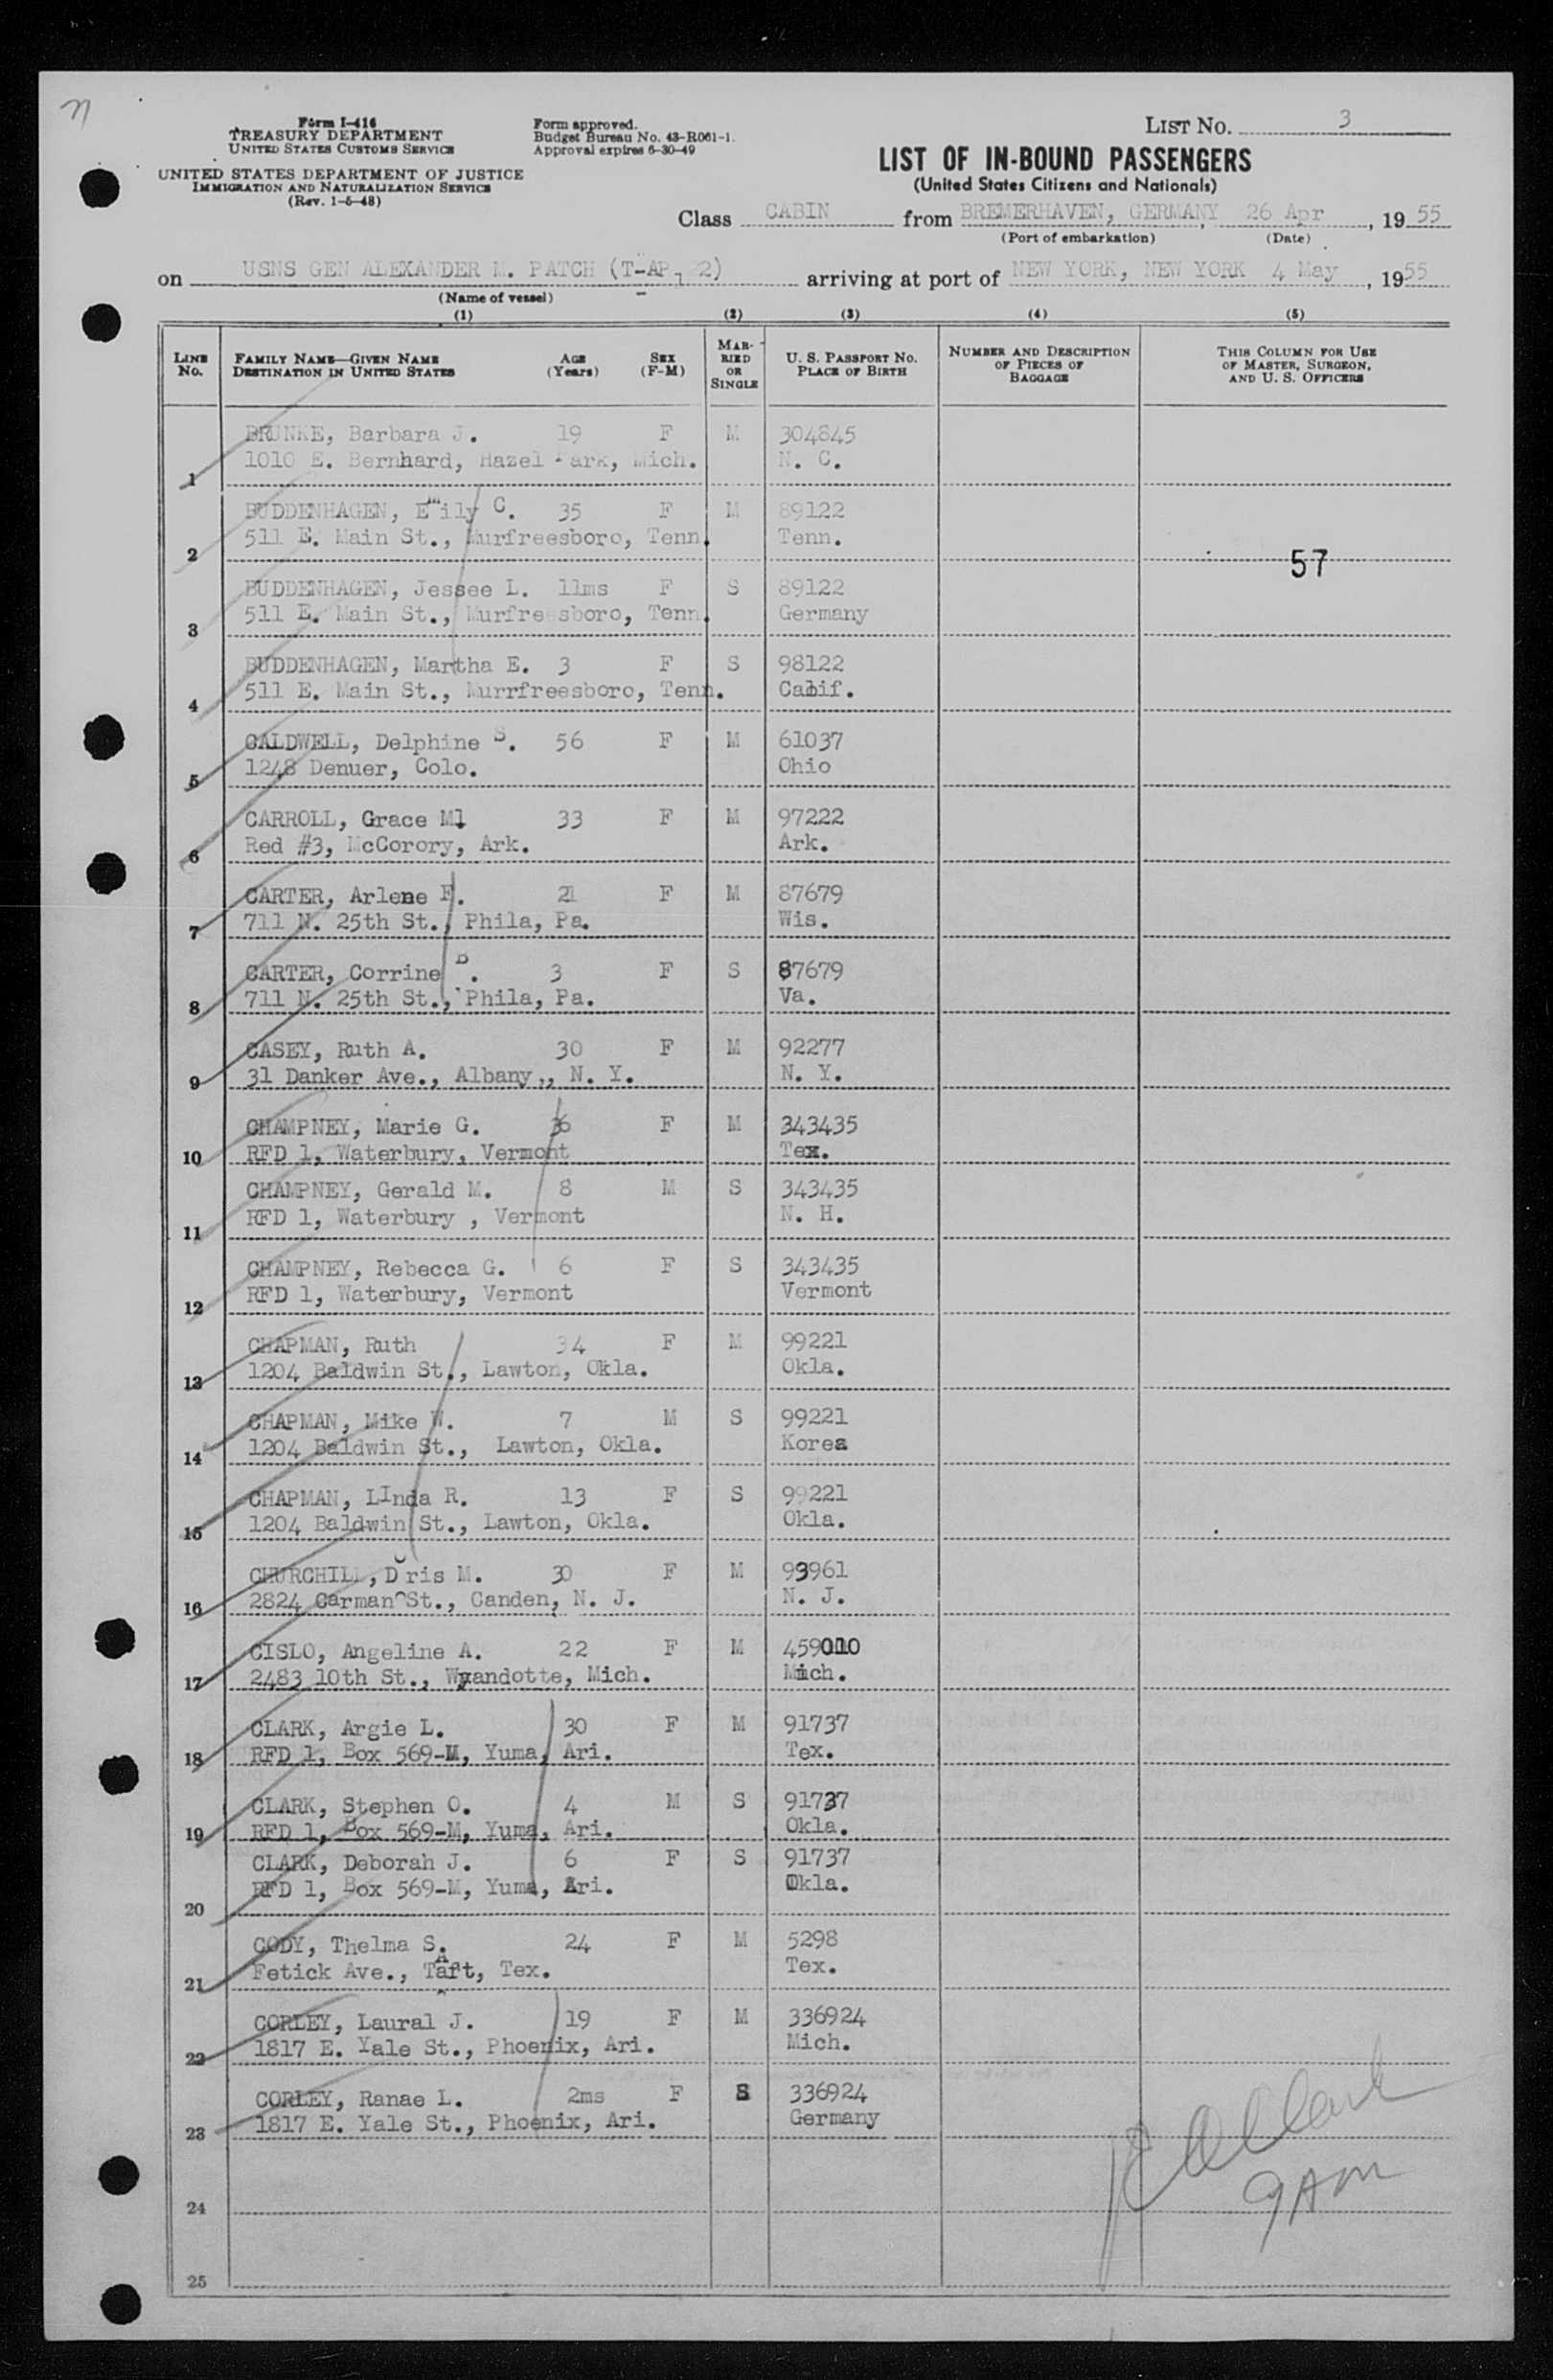 Form I-416
TREASURY DEPARTMENT
UNITED STATES CUSTOMS SERVICE
UNITED STATES DEPARTMENT OF JUSTICE
IMMIGRATION AND NATURALIZATION SERVICE
(Rev. 1-5-48)
Form approved.
Budget Bureau No. 43-R061-1.
Approval expires 6-30-49
LIST No. 3
LIST OF IN-BOUND PASSENGERS
(United States Citizens and Nationals)
Class CABIN from BREMERHAVEN, GERMANY, 26 Apr, 1955
(Port of embarkation) (Date)
on USNS GEN ALEXANDER M. PATCH (T-AP 122) arriving at port of NEW YORK, NEW YORK 4 May, 1955
(Name of vessel)
(1) (2) (3) (4) (5)
LINE No. FAMILY NAME—GIVEN NAME DESTINATION IN UNITED STATES AGE (Years) SEX (F-M) MARRIED OR SINGLE U. S. PASSPORT NO. PLACE OF BIRTH NUMBER AND DESCRIPTION OF PIECES OF BAGGAGE THIS COLUMN FOR USE OF MASTER, SURGEON, AND U. S. OFFICERS
BRUNKE, Barbara J. 19 F M 304845
1 1010 E. Bernhard, Hazel Park, Mich. N. C.
BUDDENHAGEN, Emily C. 35 F M 89122
2 511 E. Main St., Murfreesboro, Tenn. Tenn.
57
BUDDENHAGEN, Jessee L. 11ms F S 89122
3 511 E. Main St., Murfreesboro, Tenn. Germany
BUDDENHAGEN, Martha E. 3 F S 98122
4 511 E. Main St., Murrfreesboro, Tenn. Calif.
CALDWELL, Delphine S. 56 F M 61037
5 1248 Denuer, Colo. Ohio
CARROLL, Grace M. 33 F M 97222
6 Red #3, McCorory, Ark. Ark.
CARTER, Arlene F. 21 F M 87679
7 711 N. 25th St., Phila, Pa. Wis.
CARTER, Corrine B. 3 F S 87679
8 711 N. 25th St., Phila, Pa. Va.
CASEY, Ruth A. 30 F M 92277
9 31 Danker Ave., Albany,, N. Y. N. Y.
CHAMPNEY, Marie G. 36 F M 343435
10 RFD 1, Waterbury, Vermont Tex.
CHAMPNEY, Gerald M. 8 M S 343435
11 RFD 1, Waterbury , Vermont N. H.
CHAMPNEY, Rebecca G. 6 F S 343435
12 RFD 1, Waterbury, Vermont Vermont
CHAPMAN, Ruth 34 F M 99221
13 1204 Baldwin St., Lawton, Okla. Okla.
CHAPMAN, Mike W. 7 M S 99221
14 1204 Baldwin St., Lawton, Okla. Korea
CHAPMAN, LInda R. 13 F S 99221
15 1204 Baldwin St., Lawton, Okla. Okla.
CHURCHILL, Doris M. 30 F M 93961
16 2824 Carman St., Canden, N. J. N. J.
CISLO, Angeline A. 22 F M 459010
17 2483 10th St., Wyandotte, Mich. Mich.
CLARK, Argie L. 30 F M 91737
18 RFD 1, Box 569-M, Yuma, Ari. Tex.
CLARK, Stephen O. 4 M S 91737
19 RFD 1, Box 569-M, Yuma, Ari. Okla.
CLARK, Deborah J. 6 F S 91737
20 RFD 1, Box 569-M, Yuma, Ari. Okla.
CODY, Thelma S. 24 F M 5298
21 Fetick Ave., Taft, Tex. Tex.
CORLEY, Laural J. 19 F M 336924
22 1817 E. Yale St., Phoenix, Ari. Mich.
CORLEY, Ranae L. 2ms F S 336924
23 1817 E. Yale St., Phoenix, Ari. Germany
24
9 AM
25